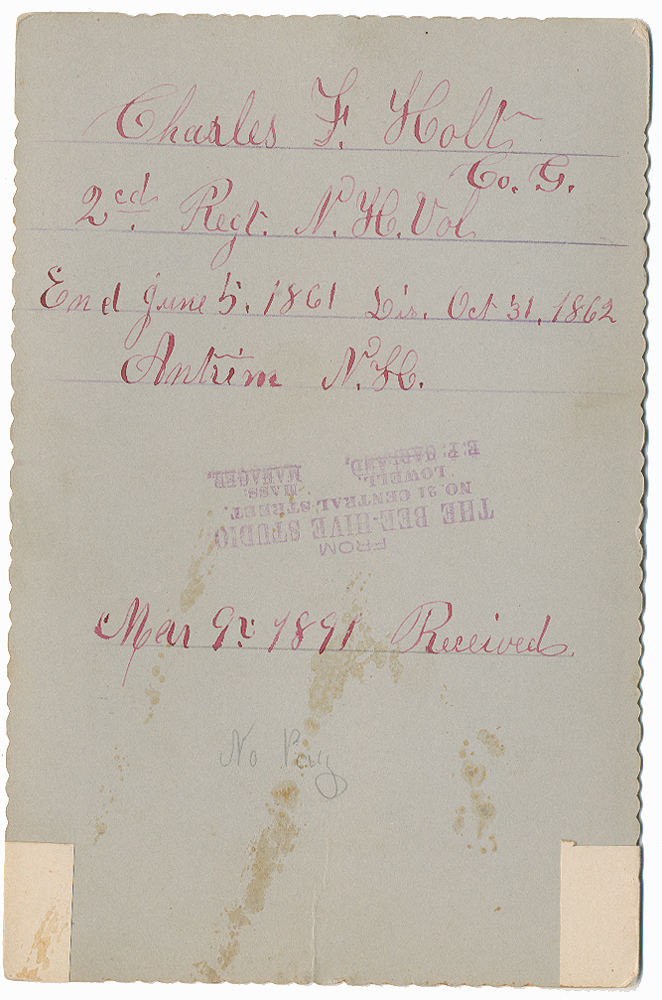 Charles F. Holt
Co. G.
2cd. Regt. N.H. Vol.
End June 5. 1861 Dis. Oct 31. 1862
Antrim N.H.
FROM
THE BEE-HIVE STUDIO
NO. 21 CENTRAL STREET.
LOWELL, MASS.
MANAGER.
Mar 9th 1891 Received
No Pay